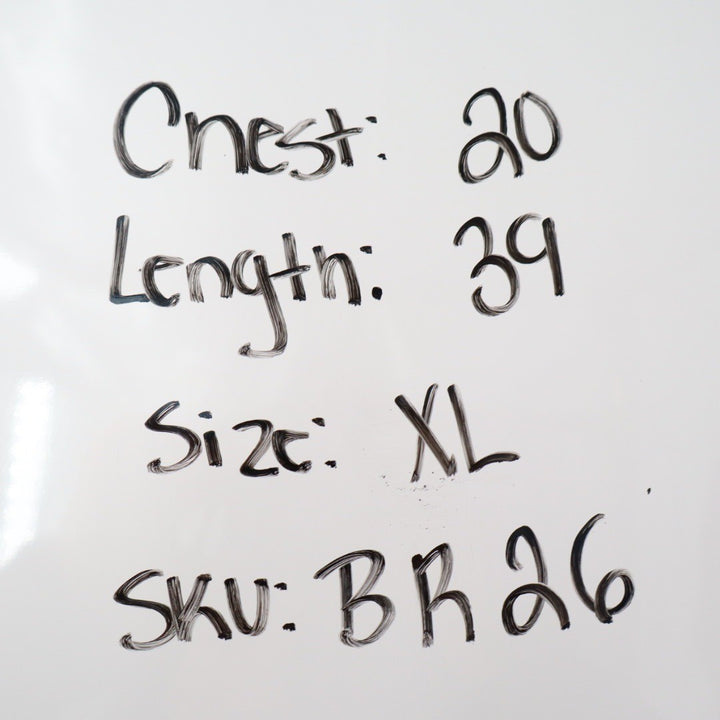 Chest: 20
Length: 39
Size: XL
SKU: BR26